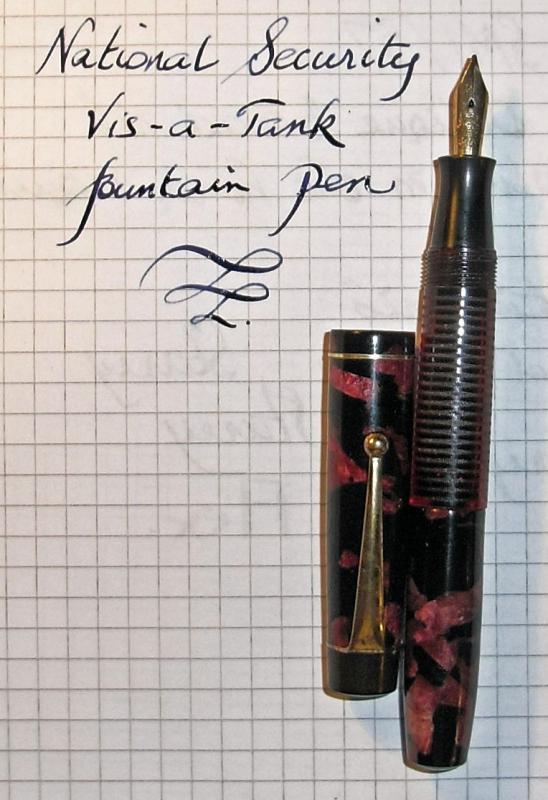 National Security
Vis-a-Tank
fountain pen